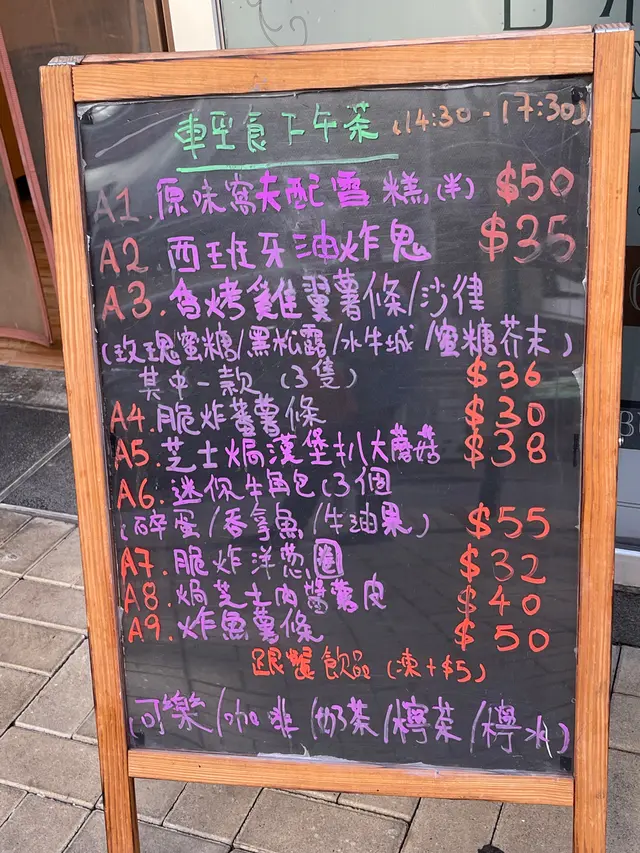 輕食下午茶 (14:30 - 17:30)
A1. 原味窩夫配雪糕(半) $50
A2 西班牙油炸鬼 $35
A3. 燒烤雞翼薯條/沙律
(玫瑰蜜糖/黑松露/水牛城/蜜糖芥末)
其中一款 (3隻) $36
A4. 脆炸蕃薯條 $30
A5. 芝士焗漢堡扒大蘑菇 $38
A6. 迷你牛角包(3個
(碎蛋/吞拿魚/牛油果) $55
A7. 脆炸洋葱圈 $32
A8. 焗芝士肉醬薯皮 $40
A9. 炸魚薯條 $50
跟餐飲品 (凍+$5)
可樂/咖啡/奶茶/檸茶/檸水